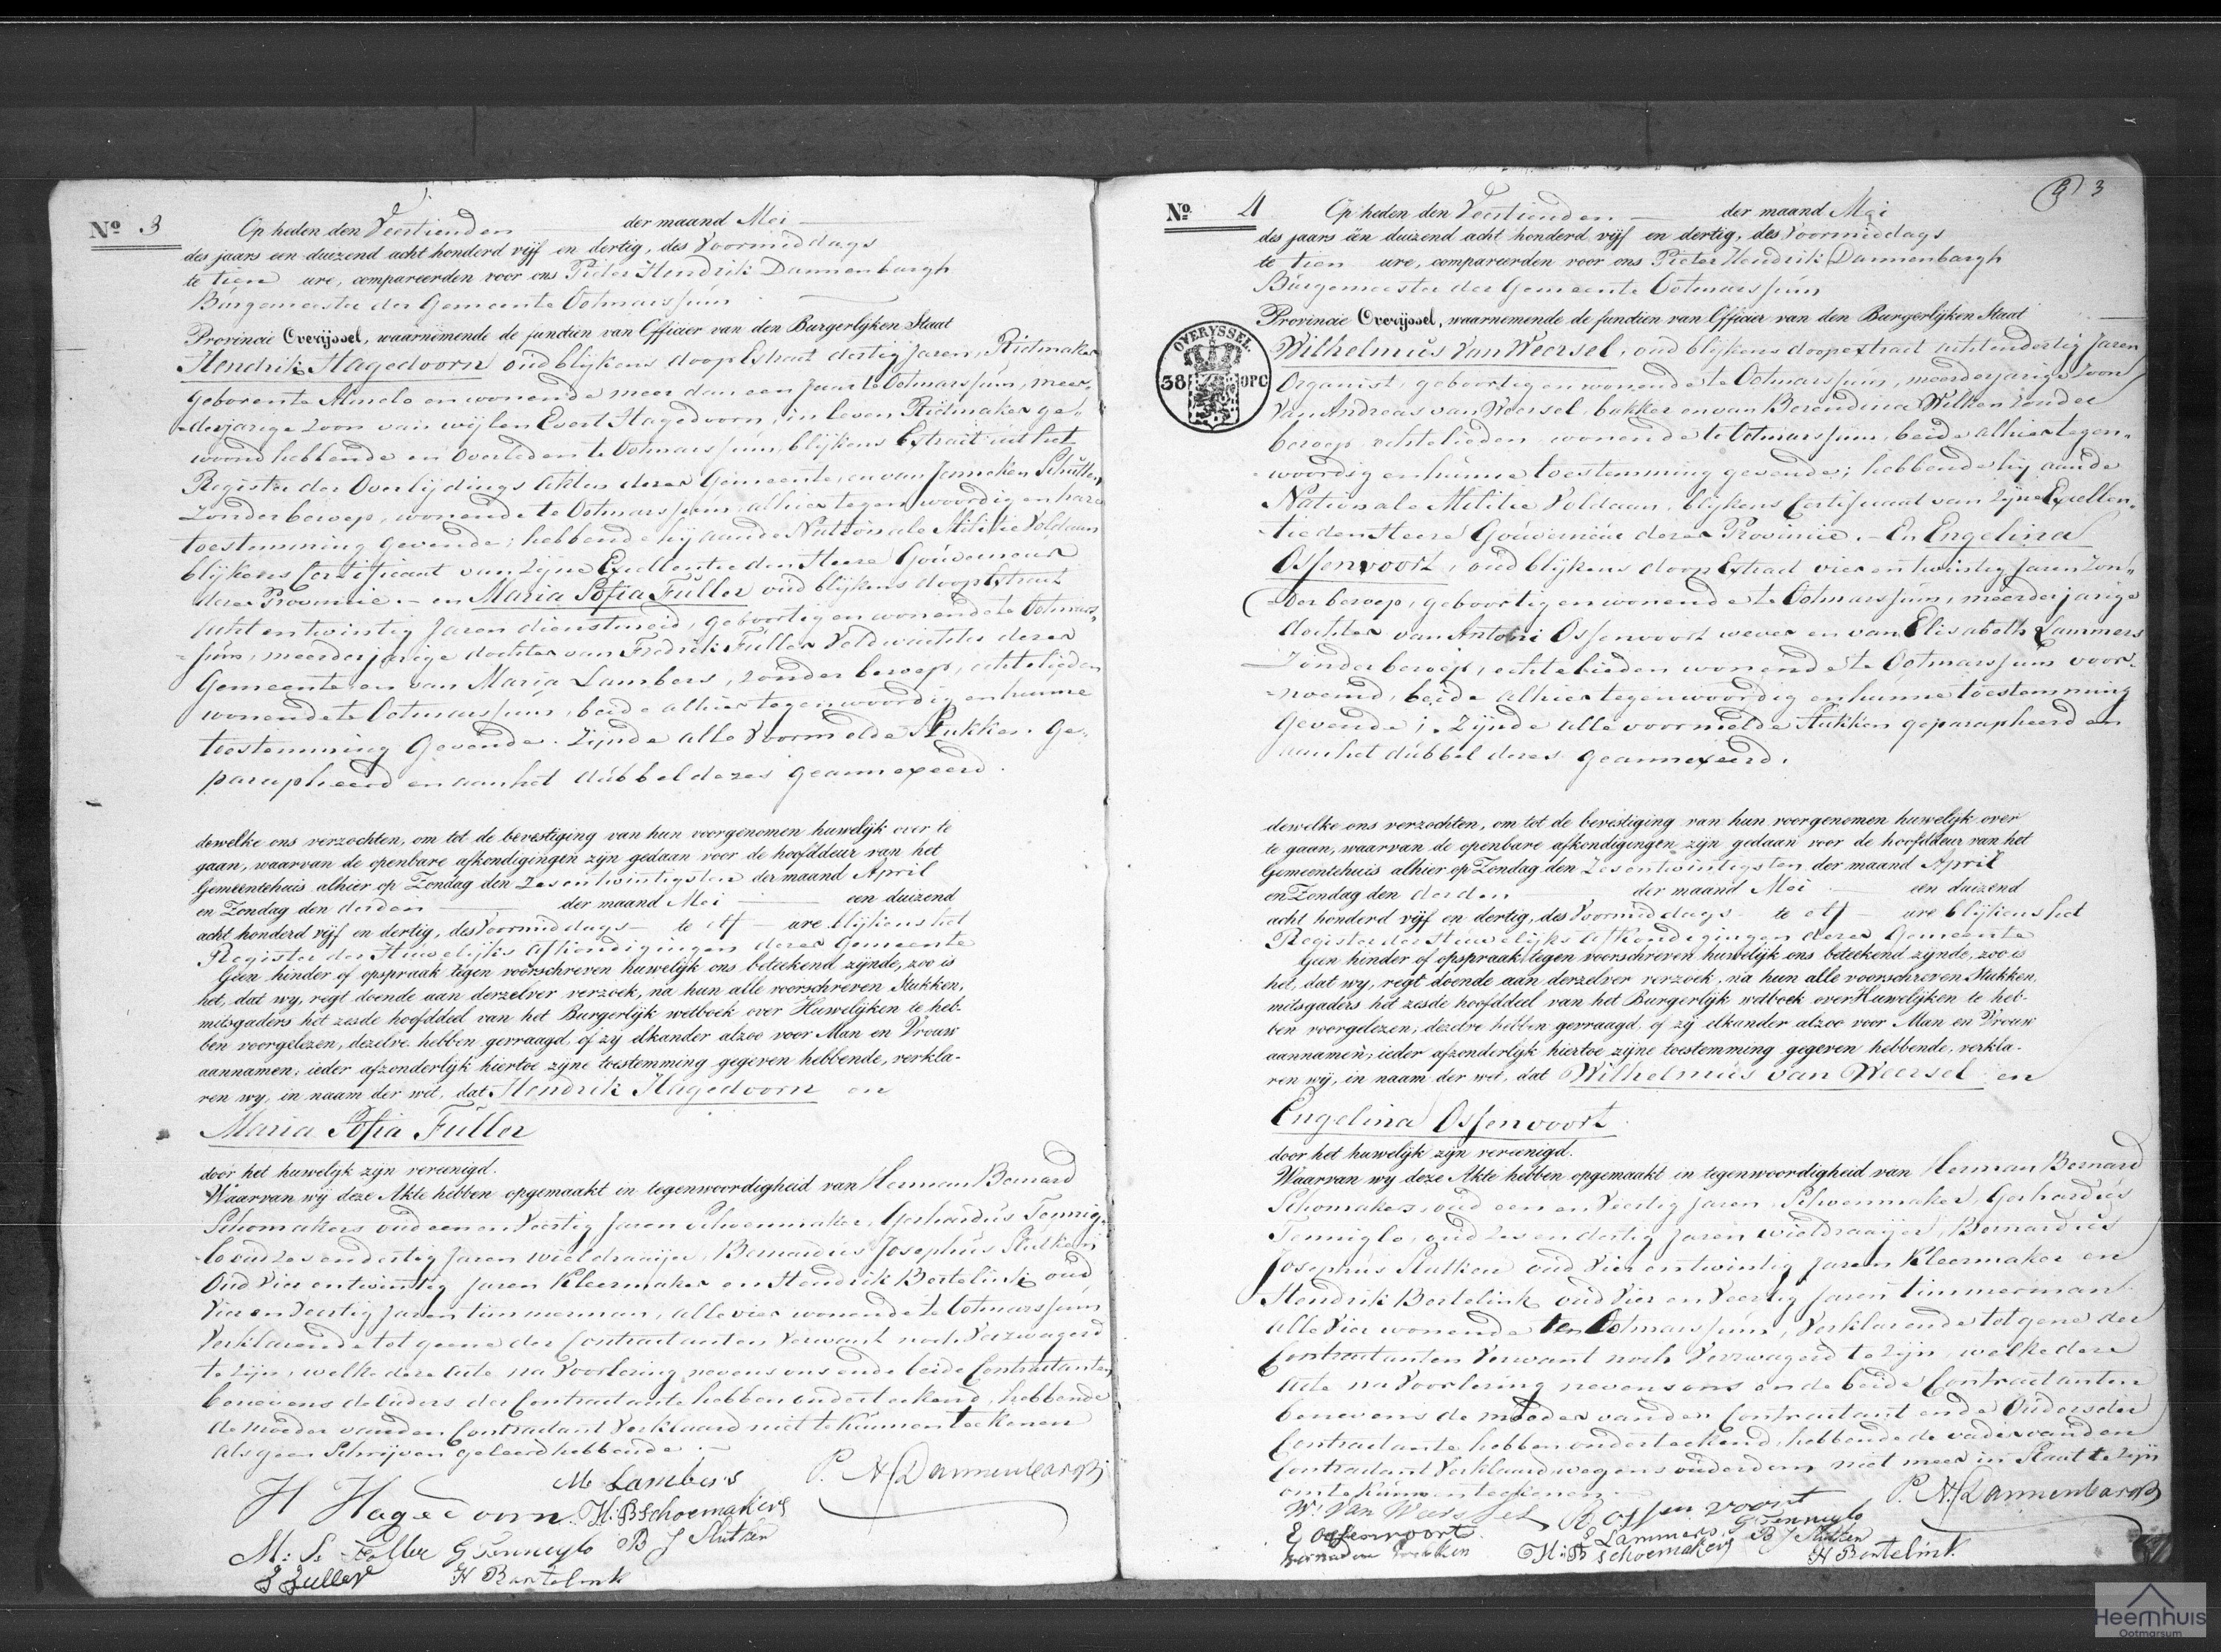 Nº 3
Op heden den Veertienden der maand Mei
des jaars een duizend acht honderd vijf en dertig, des Voormiddags
te tien ure, compareerden voor ons Pieter Hendrik Dannenbargh
Burgemeester der Gemeente Ootmarssum
Provincie Overijssel, waarnemende de functien van Officier van den Burgerlijken Staat
Hendrik Hagedoorn oud blijkens doop Extract dertig Jaren, Rietmaker
geboren te Almelo en wonende meer dan een jaar te Ootmarssum, meer„
„derjarige Zoon van wijlen Evert Hagedoorn, in leven Rietmaker ge„
woond hebbende en Overleden te Ootmarssum, blijkens Extract uit het
Register der Overlijdings Aktes dezer Gemeente, en van Jenneken Schutten
Zonder beroep, wonende te Ootmarssum alhier tegenwoordig en hare
toestemming gevende; hebbende hij aan de Nationale Militie Voldaan
blijkens Certificaat van Zijne Excellentie den Heere Gouverneur
dezer Provincie. — en Maria Sofia Fuller oud blijkens doop Extract
acht en twintig Jaren dienstmeid, geboortig en wonende te Ootmars„
„sum, meerderjarige dochter van Fredrik Fuller Veldwachter dezer
Gemeente en van Maria Lambers, zonder beroep, echtelieden
wonende te Ootmarssum, beide alhier tegenwoordig en hunne
toestemming Gevende. Zijnde alle Voormelde Stukken Ge„
parapheerd en aan het dubbel dezes geannexeerd.
dewelke ons verzochten, om tot de bevestiging van hun voorgenomen huwelijk over te
gaan, waarvan de openbare afkondigingen zijn gedaan voor de hoofddeur van het
Gemeentehuis alhier op Zondag den Zesentwintigsten der maand April
en Zondag den derden der maand Mei een duizend
acht honderd vijf en dertig, des Voormiddags te elf ure blijkens het
Register der Huwelijks Afkondigingen dezer Gemeente
Geen hinder of opspraak tegen voorschreven huwelijk ons beteekend zijnde, zoo is
het, dat wy, regt doende aan derzelver verzoek, na hun alle voorschreven Stukken,
mitsgaders het zesde hoofddeel van het Burgerlijk wetboek over Huwelijken te heb-
ben voorgelezen, dezelve hebben gevraagd, of zy elkander alzoo voor Man en Vrouw
aannamen; ieder afzonderlijk hiertoe zijne toestemming gegeven hebbende, verkla-
ren wy, in naam der wet, dat Hendrik Hagedoorn en
Maria Sofia Fuller
door het huwelyk zijn vereenigd.
Waarvan wij deze Akte hebben opgemaakt in tegenwoordigheid van Herman Bernard
Schomakers oud een en Veertig Jaren Schoenmaker, Gerhardus Tennig„
„lo oud zes en dertig Jaren wieldraaijer, Bernardus Josephus Stutken
Oud Vier en twintig Jaren Kleermaker en Hendrik Bertelink oud
Vier en Veertig Jaren timmerman, alle vier wonende te Ootmarssum
Verklarende tot geene der Contractanten Verwant noch Verzwagerd
te zijn, welke deze Acte na Voorlezing nevens ons en de beide Contractanten
benevens de Ouders der Contractante hebben onderteekend, hebbende
de moeder van den Contractant Verklaard niet te kunnen teekenen
als geen Schrijven geleerd hebbende. —
H Hagedoorn M Lambers P. H. Dannenbargh
H:B Schoemakers
M: S: Fuller G Tenniglo B J Stutken
F Fuller H Bertelink
Nº 4
3
Op heden den Veertienden der maand Mei
des jaars één duizend acht honderd vijf en dertig, des Voormiddags
te tien ure, compareerden voor ons Pieter Hendrik Dannenbargh
Burgemeester der Gemeente Ootmarssum
Provincie Overijssel, waarnemende de functien van Officier van den Burgerlijken Staat
OVERYSSEL.
38 OPC
Wilhelmus Van Weersel, oud blijkens doopextract achtendertig Jaren
Organist, geboortig en wonende te Ootmarssum, meerderjarige Zoon
Van Andreas van Weersel, bakker en van Berendina Wilken zonder
beroep echtelieden wonende te Ootmarssum, beide alhier tegen„
„woordig en hunne toestemming gevende; hebbende hij aan de
Nationale Militie Voldaan, blijkens Certificaat van zijne Excellen„
„tie den Heere Gouverneur dezer Provincie. — En Engelina
Ossenvoort, oud blijkens doop Extract vier en twintig Jaren Zon„
„der beroep, geboortig en wonende te Ootmarssum, meerderjarige
dochter van Antoni Ossenvoort wever en van Elisabeth Lammers
Zonder beroep, echtelieden wonende te Ootmarssum voor„
„noemd, beide alhier tegenwoordig en hunne toestemming
Gevende; Zijnde alle voormelde Stukken geparapheerd en
aan het dubbel dezes geannexeerd.
dewelke ons verzochten, om tot de bevestiging van hun voorgenomen huwelijk over
te gaan, waarvan de openbare afkondigingen zijn gedaan voor de hoofddeur van het
Gemeentehuis alhier op Zondag den Zesentwintigsten der maand April
en Zondag den derden der maand Mei een duizend
acht honderd vijf en dertig, des Voormiddags te elf ure blijkens het
Register der Huwelijks Afkondigingen dezer Gemeente
Geen hinder of opspraak tegen voorschreven huwelijk ons beteekend zijnde, zoo is
het, dat wy, regt doende aan derzelver verzoek, na hun alle voorschreven Stukken,
mitsgaders het zesde hoofddeel van het Burgerlijk wetboek over Huwelijken te heb-
ben voorgelezen; dezelve hebben gevraagd, of zij elkander alzoo voor Man en Vrouw
aannamen; ieder afzonderlyk hiertoe zijne toestemming gegeven hebbende, verkla-
ren wij, in naam der wet, dat Wilhelmus van Weersel en
Engelina Ossenvoort
door het huwelijk zijn vereenigd.
Waarvan wy deze Akte hebben opgemaakt in tegenwoordigheid van Herman Bernard
Schomakers, oud een en Veertig Jaren Schoenmaker, Gerhardus
Tenniglo, oud zes en dertig Jaren wieldraaijer, Bernardus
Josephus Stutken oud Vier en twintig Jaren Kleermaker en
Hendrik Bertelink oud Vier en Veertig Jaren timmerman
alle Vier wonende te Ootmarssum, Verklarende tot gene der
Contractanten Verwant noch Verzwagerd te zijn, welke deze
Acte na Voorlezing nevens ons en de beide Contractanten
benevens de moeder van den Contractant en de Ouders der
Contractante hebben onderteekend, hebbende de vader van den
Contractant Verklaard wegens ouderdom niet meer in Staat te zijn
om te kunnen teekenen. —
W: Van Weersel A Ossenvoort P. H. Dannenbargh
E Ossenvoort E Lammers G Tenniglo
H:B Schoemakers B J Stutken
H Bertelink
Heemhuis
Ootmarsum